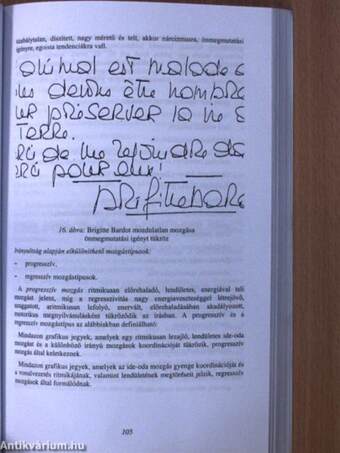 szabálytalan, díszített, nagy méretű és telt, akkor nárcizmusra, önmegmutatási
igényre, egoista tendenciákra vall.
est malade
être nombre
préserver la vie
Terre.
de me rejoindre
pour eux!
16. ábra: Brigitte Bardot mozdulatlan mozgása
önmegmutatási igényt tükröz
Irányultság alapján elkülöníthető mozgástípusok:
- progresszív,
- regresszív mozgástípusok.
A progresszív mozgás ritmikusan előrehaladó, lendületes, energiával teli
mozgást jelent, míg a regresszivitás nagy energiaveszteséggel létrejövő,
szaggatott, aritmikusan lefolyó, enervált, előrehaladásában akadályozott,
motorikus megnyilvánulásként tükröződik az írásban. A progresszív és a
regresszív mozgástípus az alábbiakban definiálható:
Mindazon grafikus jegyek, amelyek egy ritmikusan lezajló, lendületes ide-oda
mozgást és a különböző irányú mozgások koordinációját tükrözik, progresszív
mozgás által keletkeznek.
Mindazon grafikus jegyek, amelyek az ide-oda mozgás gyenge koordinációját és
a vonalvezetés ritmikájának, valamint lendületének megtörését jelzik, regresszív
mozgások által formálódnak.
105
Antikvárium.hu